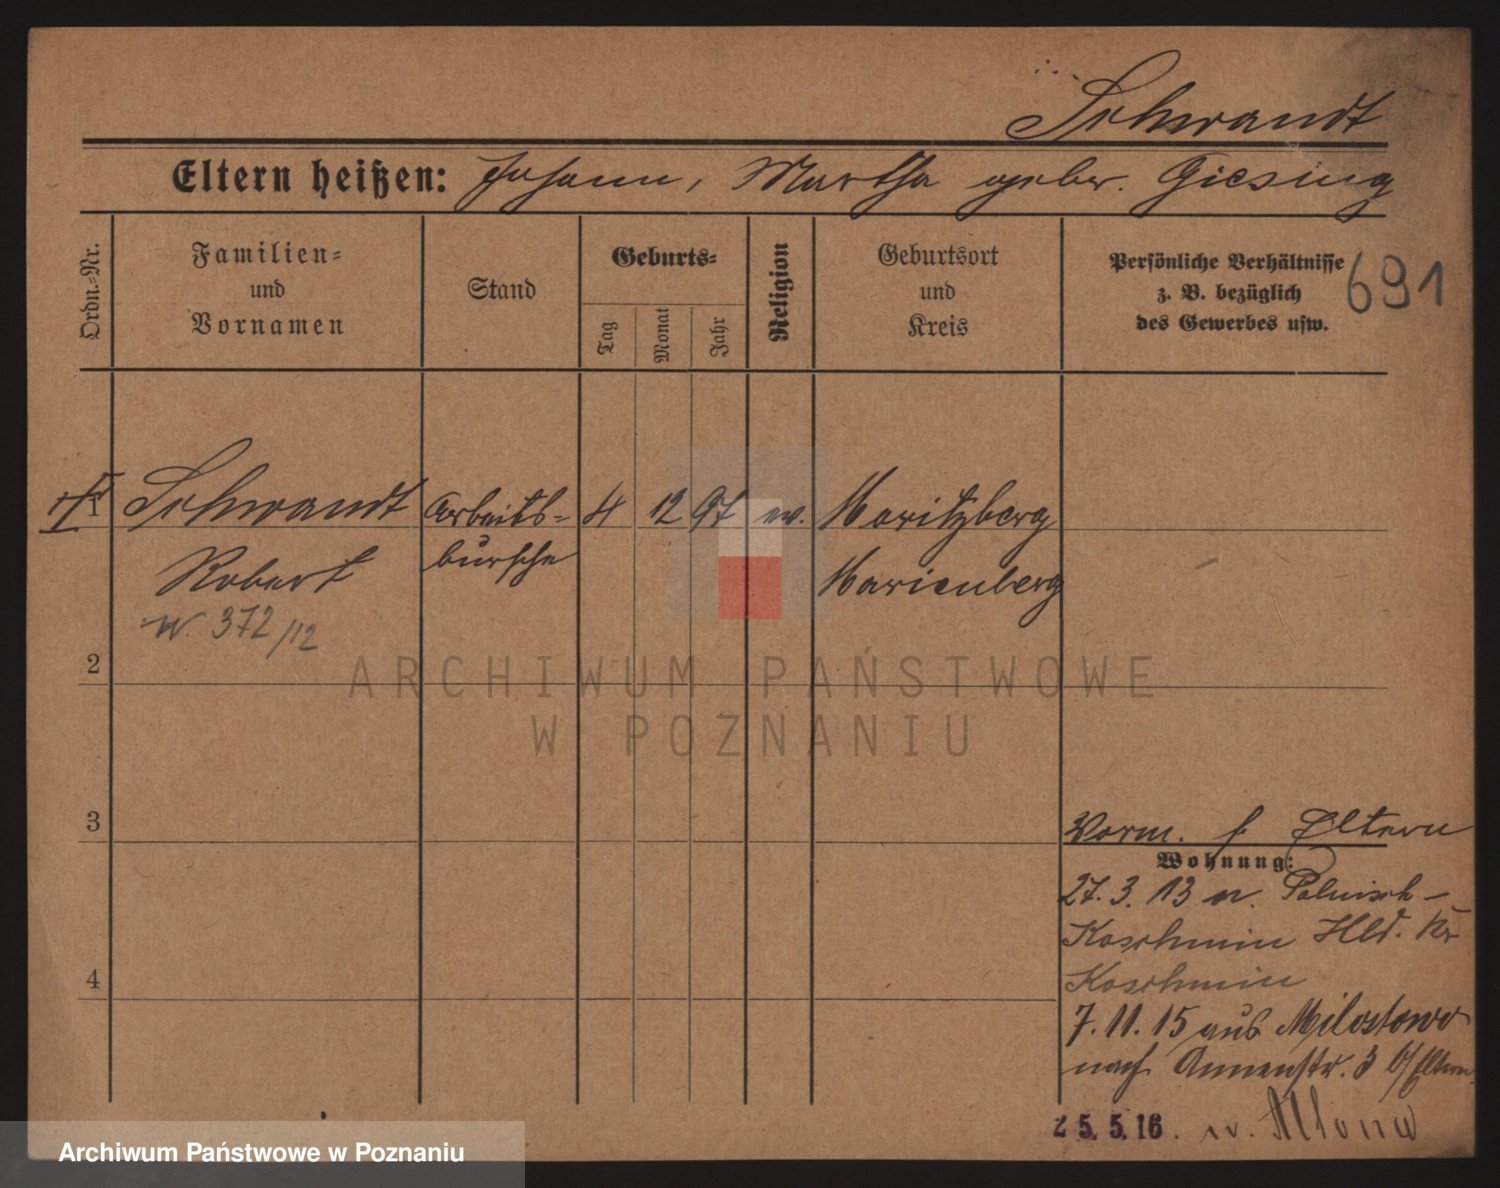 Schwandt
Eltern heißen: Johann, Martha geber. Giesing
Ordn.-Nr.
Familien-
und
Vornamen
Stand
Geburts-
Tag
Monat
Jahr
Religion
Geburtsort
und
Kreis
Persönliche Verhältnisse
z. B. bezüglich
des Gewerbes usw.
691
1
Schwandt
Arbeits-
4
12
97
ev.
Moritzberg
Robert
bursche
Marienberg
W. 372/12
2
ARCHIWUM PAŃSTWOWE
W POZNANIU
3
Vorm. f. Eltern
Wohnung:
27.3.13 n. Polnisch-
Koschmin Hld. Kr
Koschmin
4
7.11.15 aus Milostowo
nach Annenstr. 3 b/Eltern
25.5.16. n. Altona
Archiwum Państwowe w Poznaniu